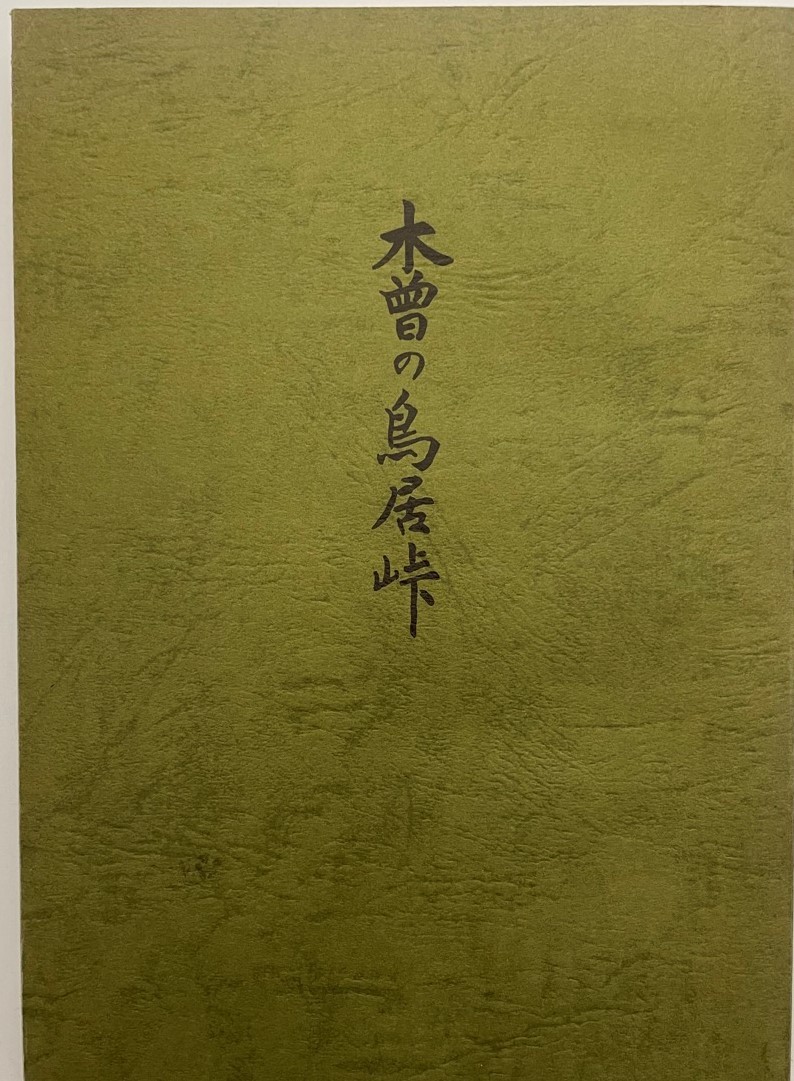 木曽の鳥居峠